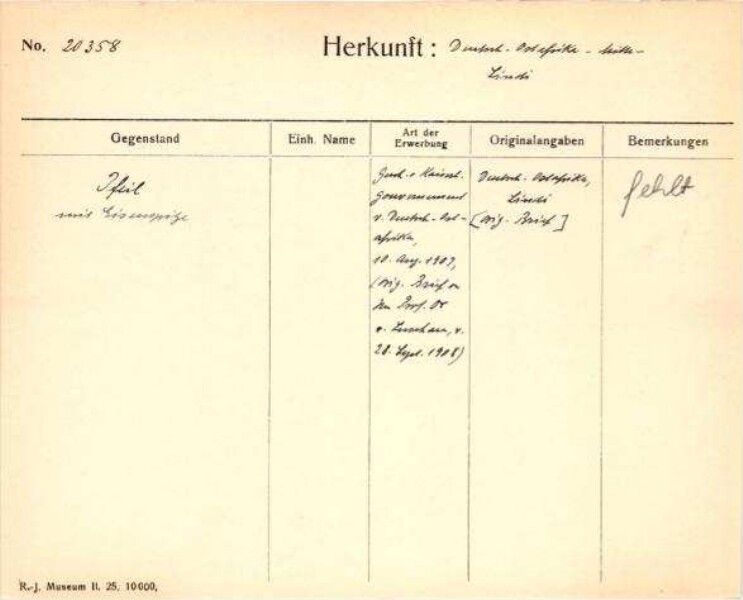 No. 20358
Herkunft : Deutsch-Ostafrika -
Lindi
Gegenstand
Einh. Name
Art der
Erwerbung
Originalangaben
Bemerkungen
Pfeil
mit Eisenspitze
Gesch. v. Kaiserl.
Gouvernement
v. Deutsch-Ost-
afrika,
10. Aug. 1907,
(Orig. Brief an
den Prof. Dr
v. Luschan, v.
28. Sept. 1908)
Deutsch-Ostafrika,
Lindi
[Orig. Brief]
fehlt
R.-J. Museum II. 25. 10000,